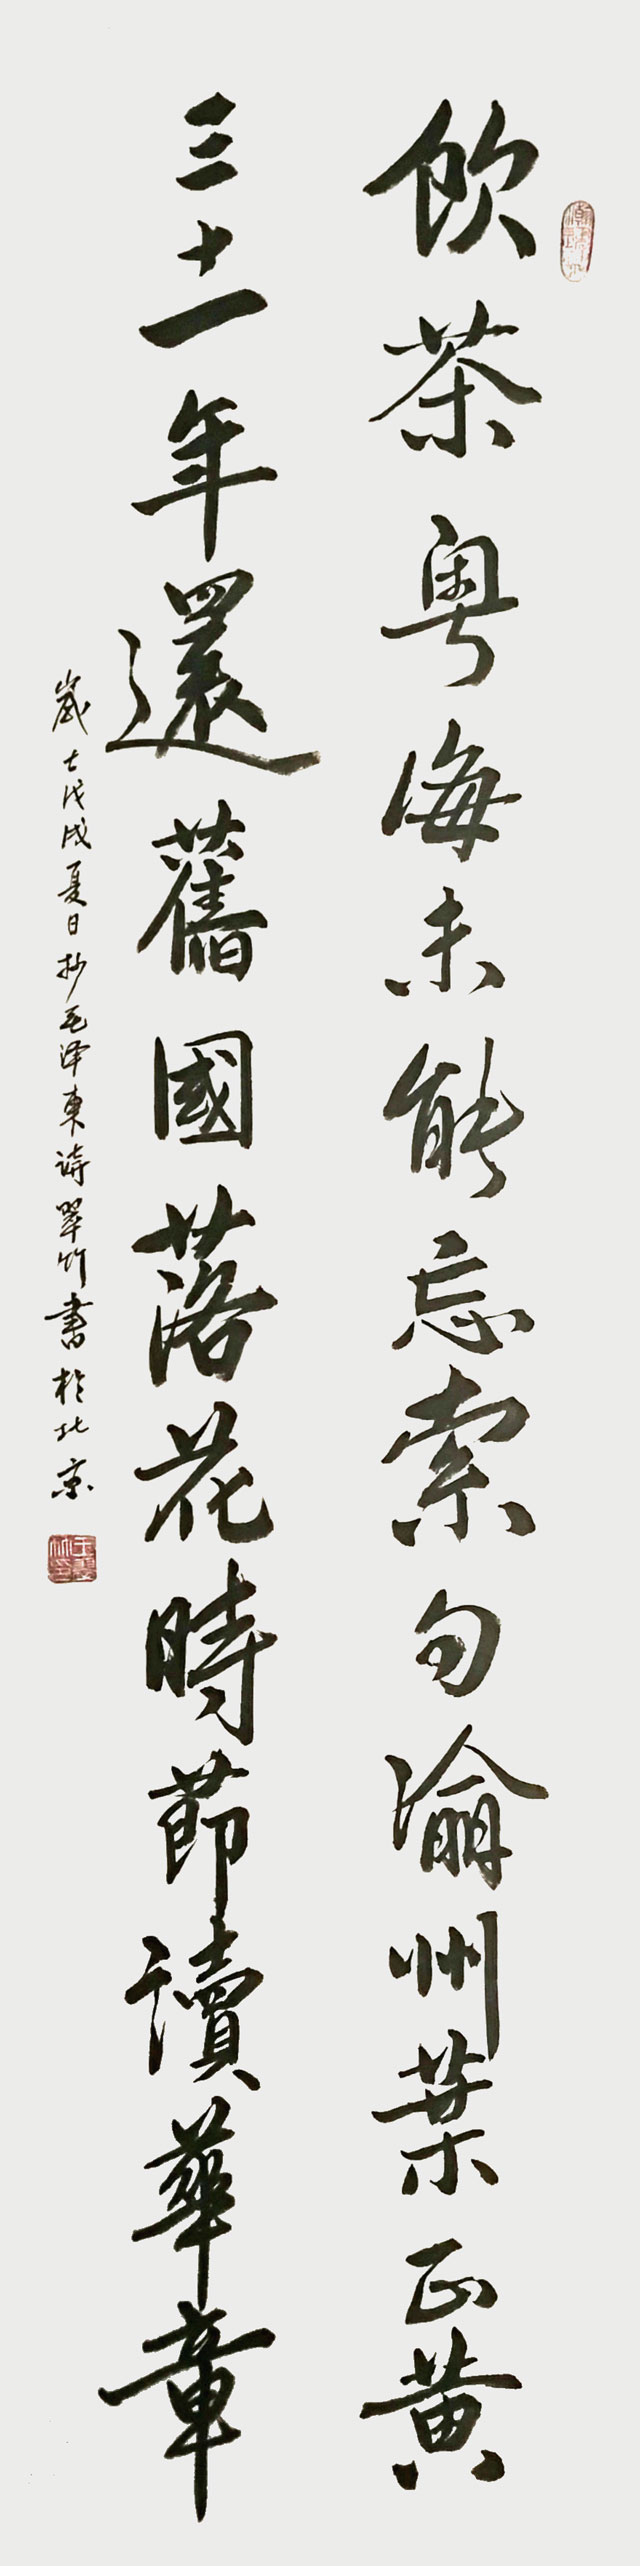 飲茶粤海未能忘索句渝州葉正黄
三十一年還舊國落花時節讀華章
歲在戊戌夏日抄毛泽東詩翠竹書於北京